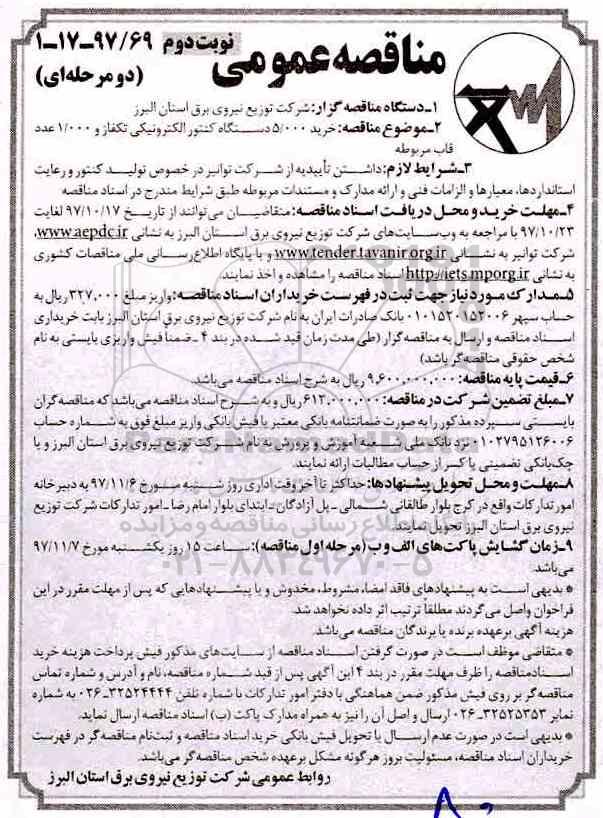 نوبت دوم ۹۷/۶۹-۱۷-۱
مناقصه عمومی
(دو مرحله‌ای)
۱-دستگاه مناقصه گزار: شرکت توزیع نیروی برق استان البرز
۲-موضوع مناقصه: خرید ۵/۰۰۰ دستگاه کنتور الکترونیکی تکفاز و ۱/۰۰۰ عدد
قاب مربوطه
۳-شرایط لازم: داشتن تأییدیه از شرکت توانیر در خصوص تولید کنتور و رعایت
استانداردها، معیارها و الزامات فنی و ارائه مدارک و مستندات مربوطه طبق شرایط مندرج در اسناد مناقصه
۴-مهلت خرید و محل دریافت اسناد مناقصه: متقاضیان می‌توانند از تاریخ ۹۷/۱۰/۱۷ لغایت
۹۷/۱۰/۲۳ با مراجعه به وب‌سایت‌های شرکت توزیع نیروی برق استان البرز به نشانی www.aepdc.ir،
شرکت توانیر به نشانی www.tender.tavanir.org.ir و یا پایگاه اطلاع‌رسانی ملی مناقصات کشوری
به نشانی http://iets.mporg.ir اسناد مناقصه را مشاهده و اخذ نمایند.
۵-مدارک مورد نیاز جهت ثبت در فهرست خریداران اسناد مناقصه: واریز مبلغ ۳۲۷,۰۰۰ ریال به
حساب سپهر ۰۱۰۱۵۲۰۱۵۲۰۰۶ بانک صادرات ایران به نام شرکت توزیع نیروی برق استان البرز بابت خریداری
اسناد مناقصه و ارسال به مناقصه‌گزار (طی مدت زمان قید شده در بند ۴ - ضمناً فیش واریزی بایستی به نام
شخص حقوقی مناقصه‌گر باشد)
۶-قیمت پایه مناقصه: ۹,۶۰۰,۰۰۰,۰۰۰ ریال به شرح اسناد مناقصه می‌باشد.
۷-مبلغ تضمین شرکت در مناقصه: ۶۱۳,۰۰۰,۰۰۰ ریال و به شرح اسناد مناقصه می‌باشد که مناقصه‌گران
بایستی سپرده مذکور را به صورت ضمانتنامه بانکی معتبر یا فیش بانکی واریز مبلغ فوق به شماره حساب
۰۱۰۲۷۹۵۱۲۶۰۰۶ نزد بانک ملی شعبه آموزش و پرورش به نام شرکت توزیع نیروی برق استان البرز و یا
چک‌بانکی تضمینی یا کسر از حساب مطالبات ارائه نمایند.
۸-مهلت و محل تحویل پیشنهادها: حداکثر تا آخر وقت اداری روز شنبه مورخ ۹۷/۱۱/۶ به دبیرخانه
امور تدارکات واقع در کرج بلوار طالقانی شمالی - پل آزادگان - ابتدای بلوار امام رضا - امور تدارکات شرکت توزیع
نیروی برق استان البرز تحویل نمایند.
۹-زمان گشایش پاکت‌های الف و ب (مرحله اول مناقصه): ساعت ۱۵ روز یکشنبه مورخ ۹۷/۱۱/۷
می‌باشد.
* بدیهی است به پیشنهادهای فاقد امضا، مشروط، مخدوش و یا پیشنهادهایی که پس از مهلت مقرر در این
فراخوان واصل می‌گردند مطلقاً ترتیب اثر داده نخواهد شد.
هزینه آگهی برعهده برنده یا برندگان مناقصه می‌باشد.
* متقاضی موظف است در صورت گرفتن اسناد مناقصه از سایت‌های مذکور فیش پرداخت هزینه خرید
اسناد مناقصه را ظرف مهلت مقرر در بند ۴ این آگهی پس از قید شماره مناقصه، نام و آدرس و شماره تماس
مناقصه‌گر بر روی فیش مذکور ضمن هماهنگی با دفتر امور تدارکات با شماره تلفن ۳۲۵۲۴۴۴۴-۰۲۶ به شماره
نمابر ۳۲۵۲۵۳۵۳-۰۲۶ ارسال و اصل آن را نیز به همراه مدارک پاکت (ب) اسناد مناقصه ارسال نماید.
* بدیهی است در صورت عدم ارسال یا تحویل فیش بانکی خرید اسناد مناقصه و ثبت‌نام مناقصه‌گر در فهرست
خریداران اسناد مناقصه، مسئولیت بروز هرگونه مشکل برعهده شخص مناقصه‌گر می‌باشد.
روابط عمومی شرکت توزیع نیروی برق استان البرز
اطلاع رسانی مناقصه و مزایده
۰۲۱-۸۸۳۴۹۶۷۰-۵